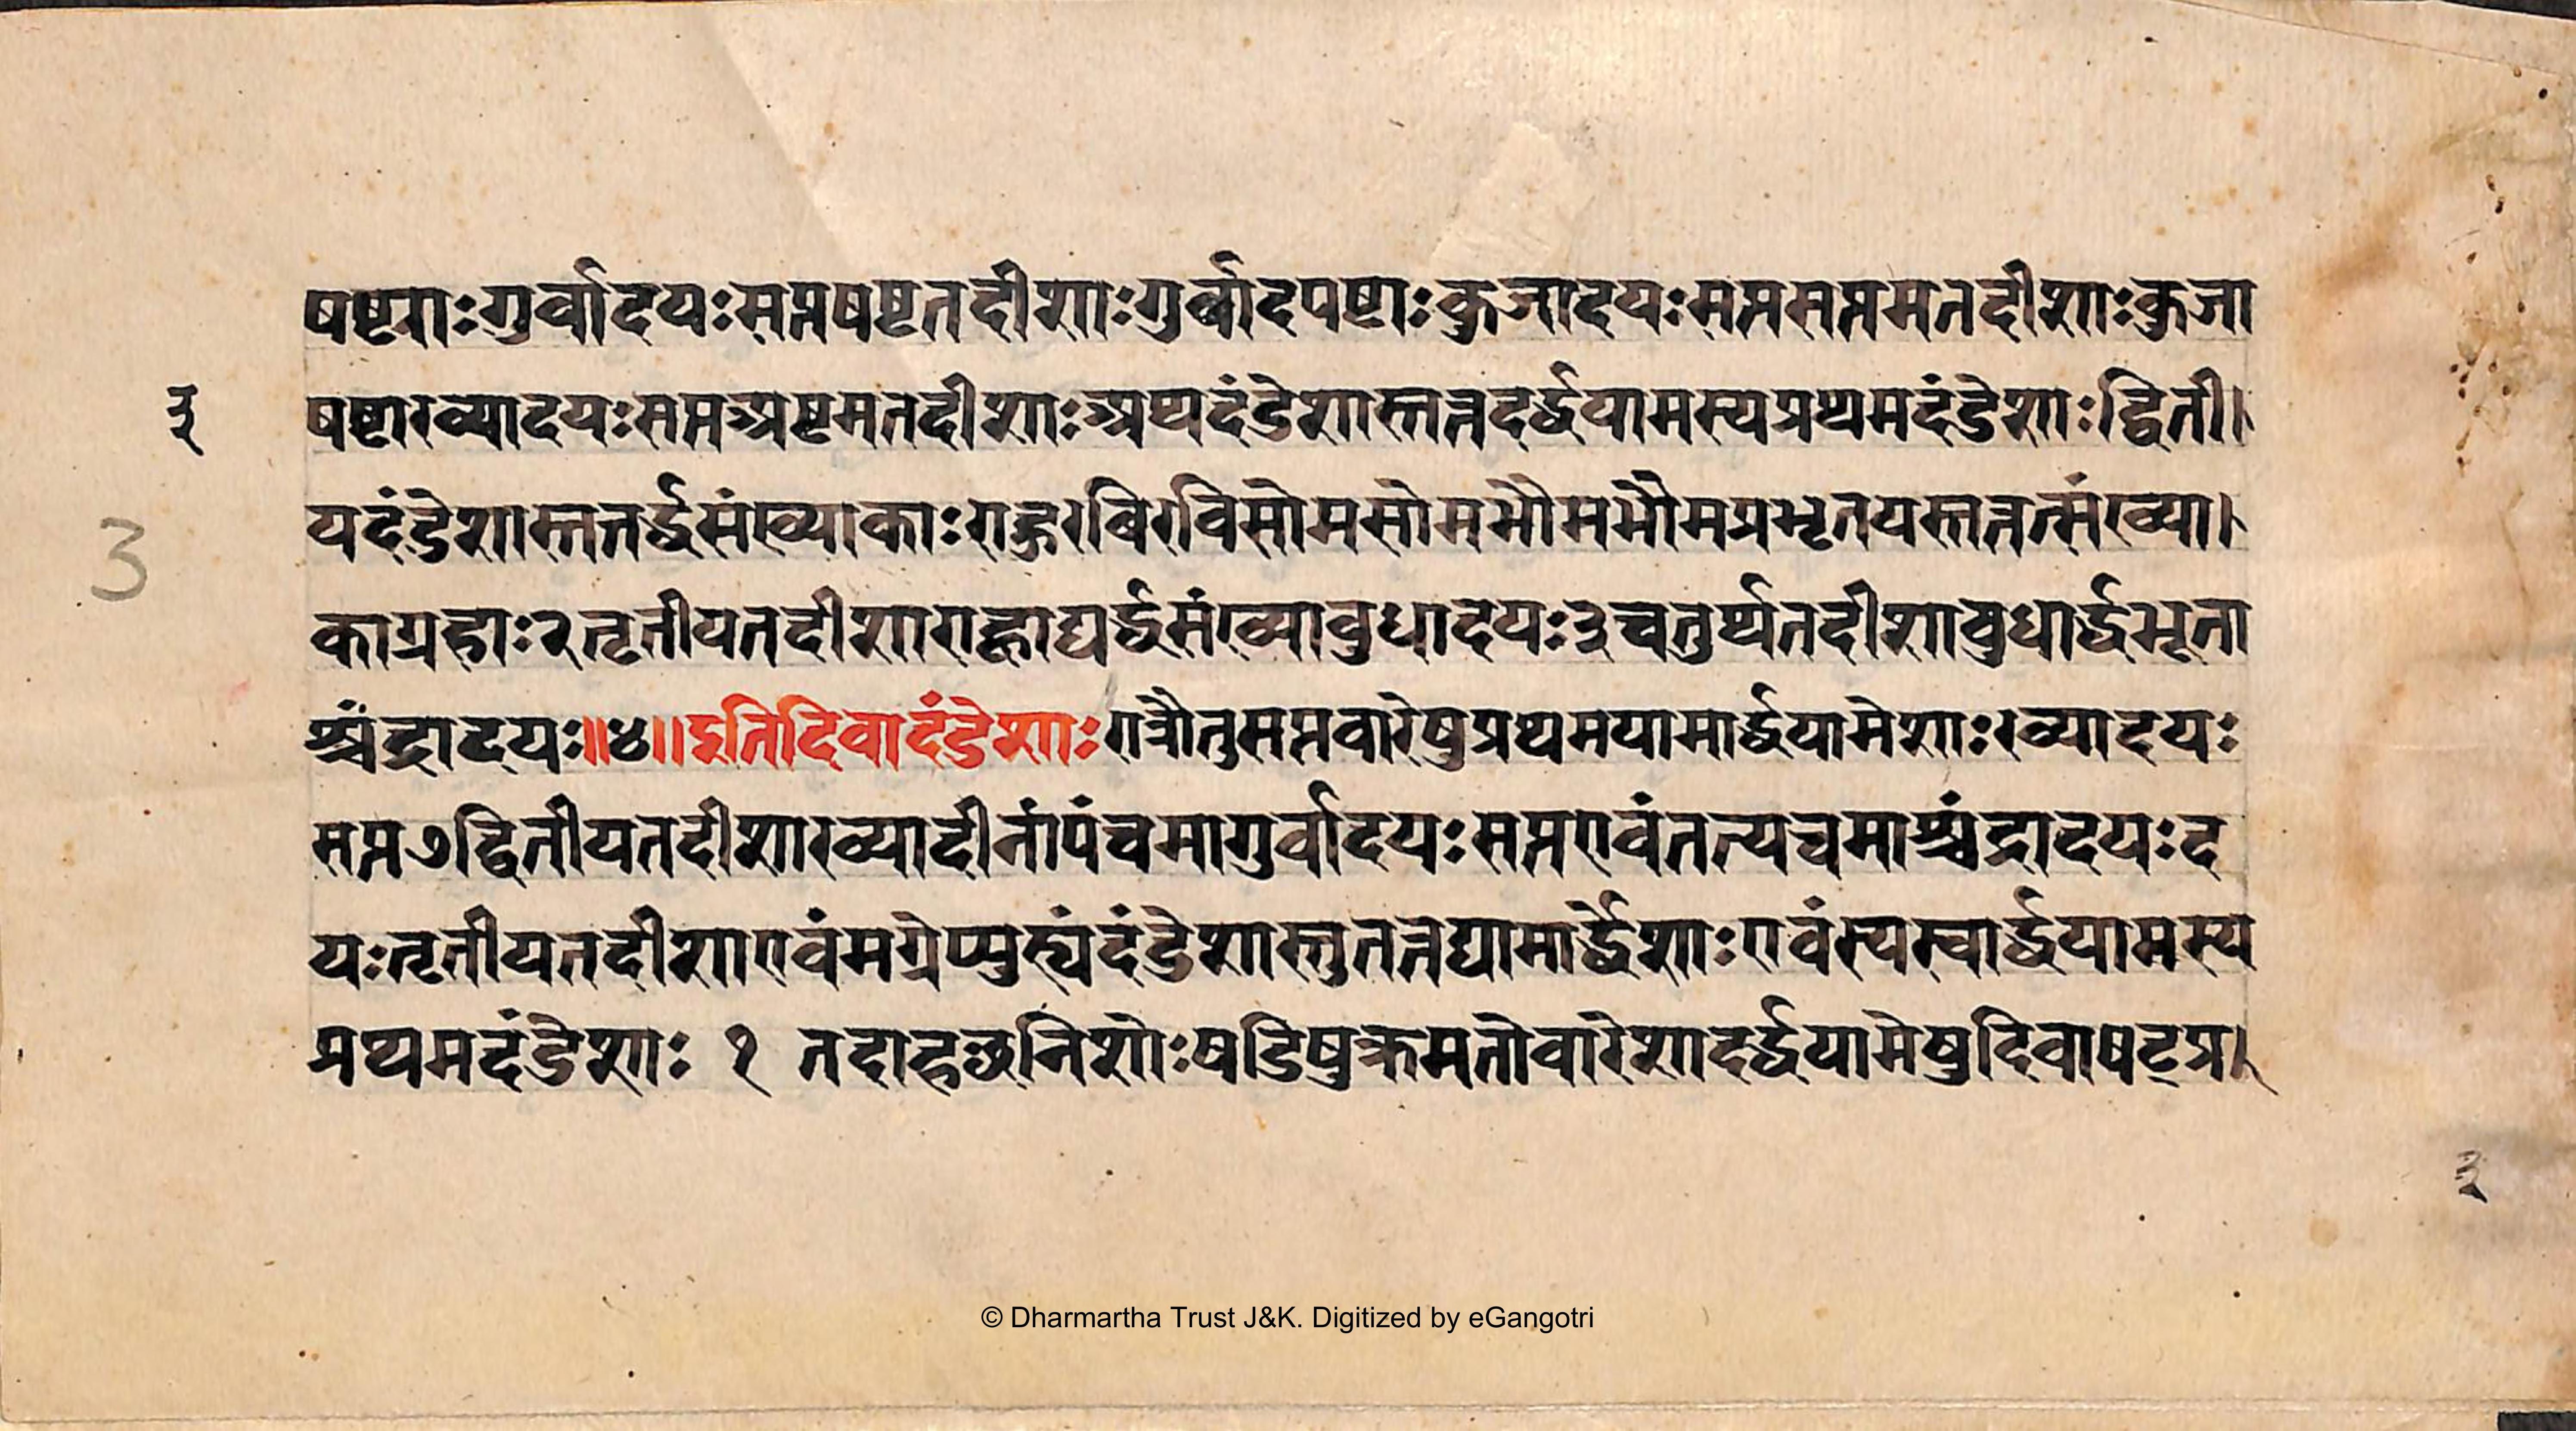 षष्टाः गुर्वादयः सप्तषष्टतदीशाः गुर्वादपष्टाः कुजादयः सप्तसप्तमतदीशाः कुजा
३
षष्टारव्यादयः सप्तअष्टमतदीशाः अथदंडेशास्तत्तदर्द्धयामस्यप्रथमदंडेशाः द्विती।
3
यदंडेशास्तत्तर्द्धसंख्याकाः राहुरविरविसोमसोमभौमभौमप्रभृतयस्तत्तत्संख्या।
काग्रहाः २ तृतीयतदीशाराह्वाद्यर्द्धसंख्याबुधादयः ३ चतुर्थतदीशाबुधार्द्धभूता
श्चंद्रादयः॥४॥ इतिदिवादंडेशाः रात्रौतुसप्तवारेषुप्रथमयामार्द्धयामेशाः रव्यादयः
सप्त७द्वितीयतदीशारव्यादीनांपंचमागुर्वादयः सप्तएवंतत्पचमाश्चंद्रादयः द
यः तृतीयतदीशाएवंमग्रेप्युह्यंदंडेशास्तुतत्तद्यामार्द्धेशाः एवंस्यस्वार्द्धयामस्य
प्रथमदंडेशाः १ तदाहरुनिशोः षडिषुक्रमतोवारेशादर्द्धयामेषुदिवाषट्प्र।
३
© Dharmartha Trust J&K. Digitized by eGangotri